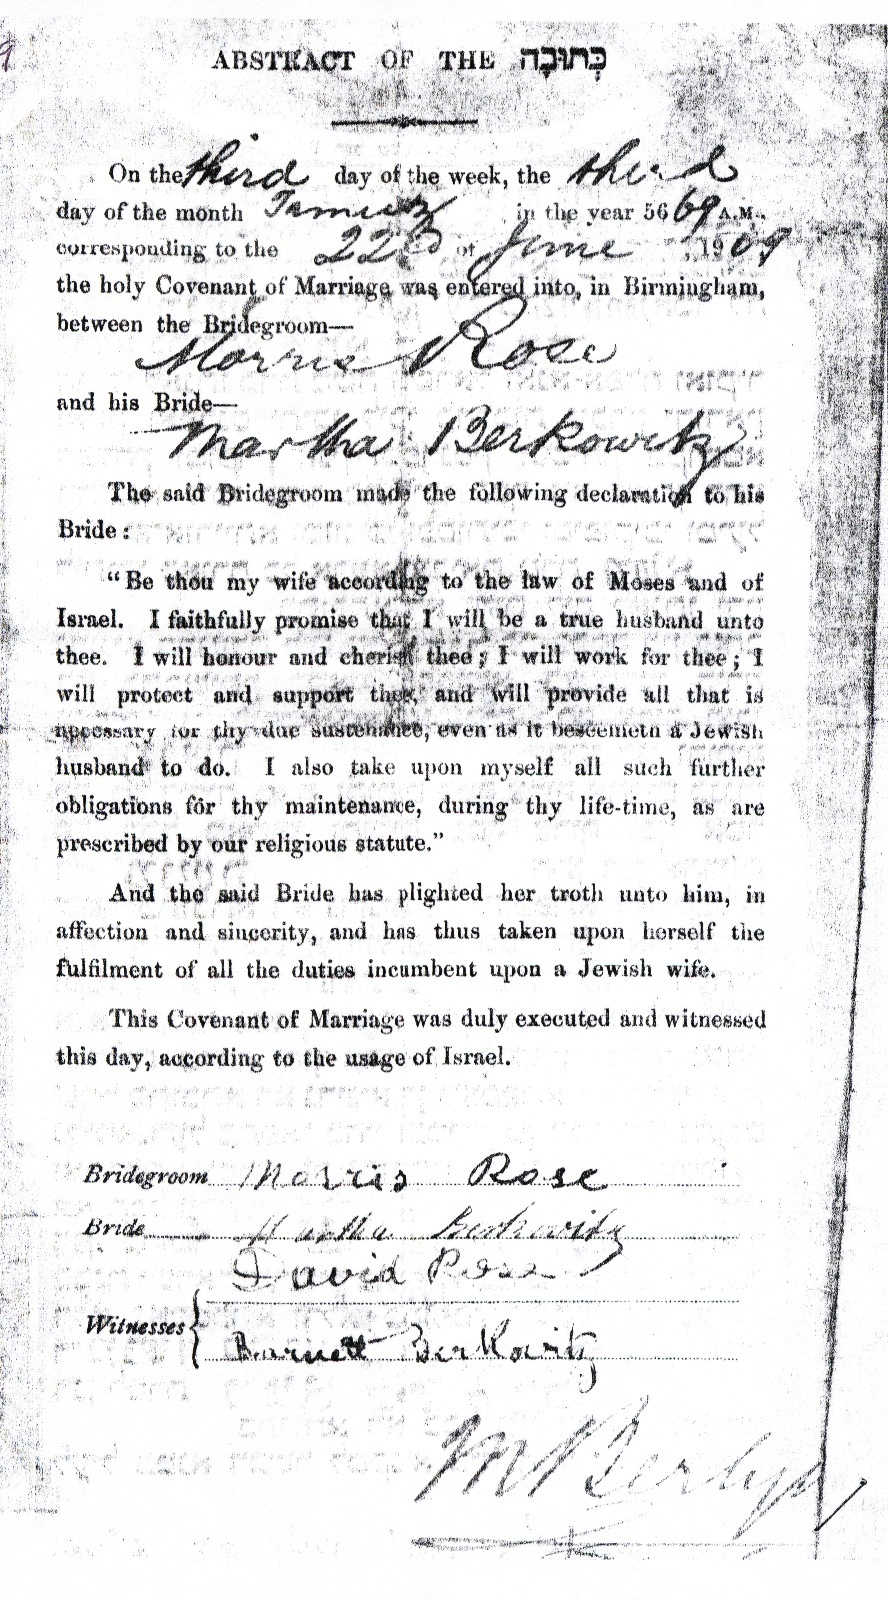 ABSTRACT OF THE כְּתוּבָה
On the third day of the week, the third
day of the month Tamuz in the year 5669 A.M.,
corresponding to the 22nd of June, 1909
the holy Covenant of Marriage was entered into, in Birmingham,
between the Bridegroom—
Morris Rose
and his Bride—
Martha Berkowitz
The said Bridegroom made the following declaration to his
Bride:
“Be thou my wife according to the law of Moses and of
Israel. I faithfully promise that I will be a true husband unto
thee. I will honour and cherish thee; I will work for thee; I
will protect and support thee, and will provide all that is
necessary for thy due sustenance, even as it beseemeth a Jewish
husband to do. I also take upon myself all such further
obligations for thy maintenance, during thy life-time, as are
prescribed by our religious statute.”
And the said Bride has plighted her troth unto him, in
affection and sincerity, and has thus taken upon herself the
fulfilment of all the duties incumbent upon a Jewish wife.
This Covenant of Marriage was duly executed and witnessed
this day, according to the usage of Israel.
Bridegroom Morris Rose
Bride Martha Berkowitz
David Rose
Witnesses
Barnett Berkowitz